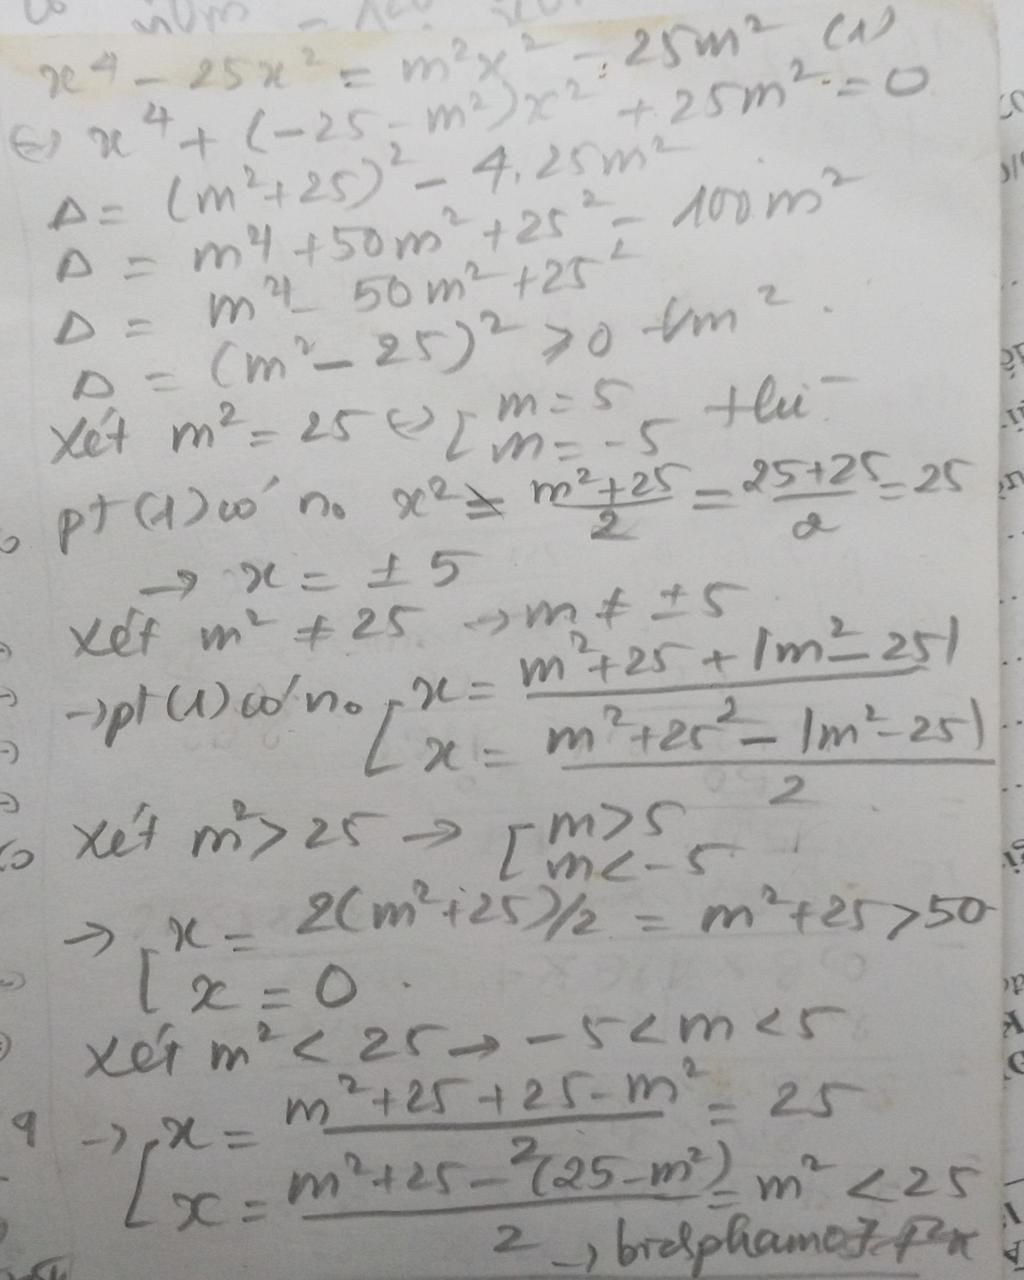 x⁴ - 25x² = m²x² - 25m² (1)
⇔ x⁴ + (-25 - m²)x² + 25m² = 0
Δ = (m² + 25)² - 4.25m²
Δ = m⁴ + 50m² + 25² - 100m²
Δ = m⁴ - 50m² + 25²
Δ = (m² - 25)² ≥ 0 ∀m².
Xét m² = 25 ⇔ [ m = 5
m = -5 thì
pt (1) có n₀ x² = (m² + 25)/2 = (25+25)/2 = 25
→ x = ± 5
Xét m² ≠ 25 → m ≠ ± 5
→ pt (1) có n₀ [ x = m² + 25 + |m² - 25|
x = (m² + 25² - |m² - 25|)/2
Xét m² > 25 → [ m > 5
m < -5
→ [ x = 2(m² + 25)/2 = m² + 25 > 50
x = 0
Xét m² < 25 → -5 < m < 5
→ [ x = m² + 25 + 25 - m² = 25
x = (m² + 25 - (25 - m²))/2 = m² < 25